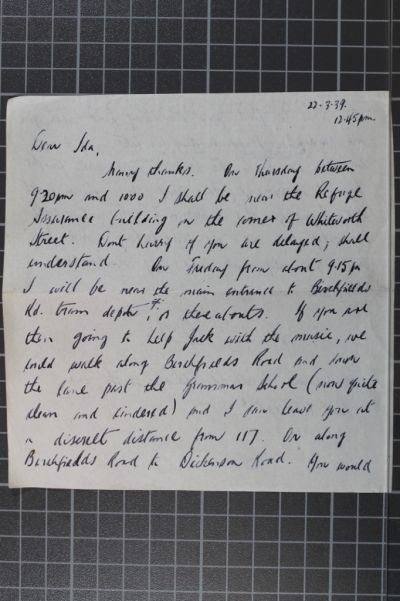 22-3-39.
12.45pm.
Dear Ida,
Many thanks. On Thursday between
9.20pm and 1000 I shall be near the Refuge
Assurance building on the corner of Whitworth
Street. Dont hurry if you are delayed; shall
understand On Friday from about 9.15pm
I will be near the main entrance to Birchfields
Rd. tram depot, or thereabouts. If you are
then going to help Jack with the music, we
could walk along Birchfields Road and down
the lane past the Grammar School (now quite
clean and cindered) and I can leave you at
a discreet distance from 117. Or along
Birchfields Road to Dickenson Road. You would